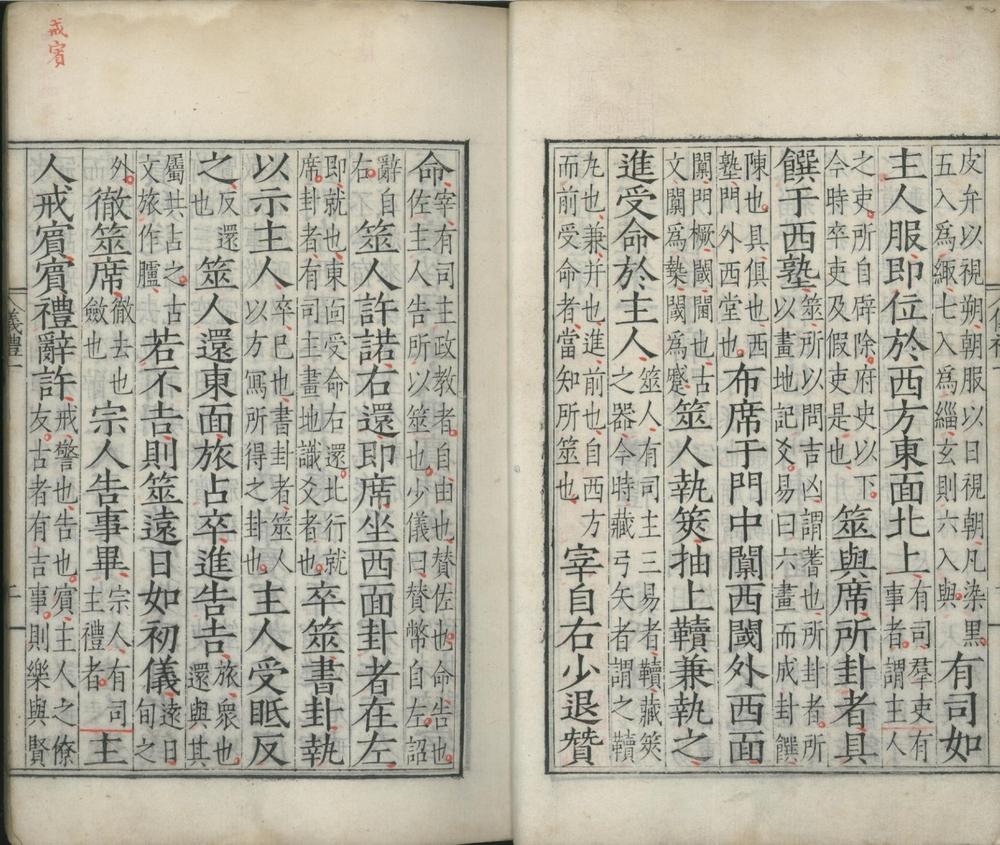 皮弁以視朔朝服以日視朝凡染黑五入爲緅七入爲緇玄則六入與有司如
主人服即位於西方東面北上有司羣吏有事者謂主人
之吏所自辟除府史以下今時卒吏及假吏是也筮與席所卦者具
饌于西塾筮所以問吉凶謂蓍也所卦者所以畫地記爻易曰六畫而成卦饌
陳也具俱也西塾門外西堂也布席于門中闑西閾外西面
闑門橛閾閫也古文闑爲槷閾爲蹙筮人執筴抽上韇兼執之
進受命於主人筮人有司主三易者韇藏筴之器今時藏弓矢者謂之韇
丸也兼并也進前也自西方而前受命者當知所筮也宰自右少退贊
命宰有司主政教者自由也贊佐也命告也佐主人告所以筮也少儀曰贊幣自左詔
辭自右筮人許諾右還即席坐西面卦者在左
即就也東面受命右還北行就席卦者有司主畫地識爻者也卒筮書卦執
以示主人卒已也書卦者筮人以方寫所得之卦也主人受眡反
之反還也筮人還東面旅占卒進告吉旅衆也還與其
屬共占之古文旅作臚若不吉則筮遠日如初儀遠日旬之
外徹筮席徹去也斂也宗人告事畢宗人有司主禮者主
人戒賓賓禮辭許戒警也告也賓主人之僚友古者有吉事則樂與賢
戒賓
儀禮一